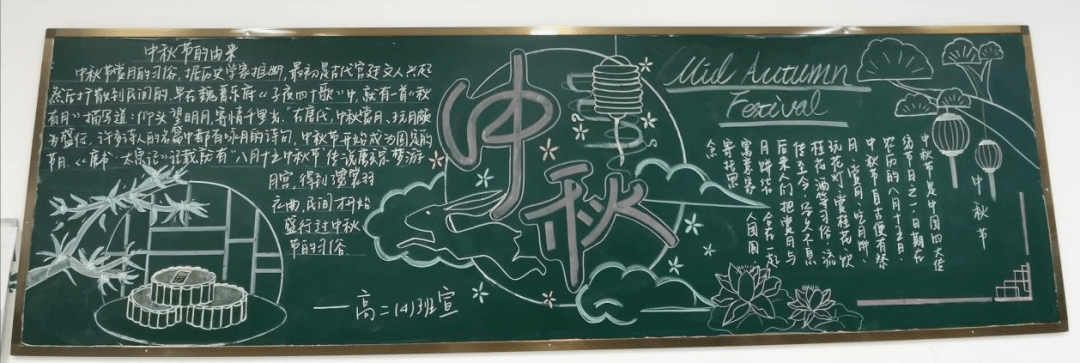 中秋节的由来
中秋节赏月的习俗,据历史学家推断,最初是古代宫廷文人兴起
然后扩散到民间的,早在魏晋乐府《子夜四十歌》中,就有一首《秋
有月》描写道:仰头望明月,寄情千里光。在唐代,中秋赏月、玩月颇
为盛行,许多诗人的名篇中都有咏月的诗句,中秋节开始成为固定的
节日,《唐书·太宗记》记载所有"八月十五中秋节"传说唐玄宗梦游
月宫,得到了霓裳羽
衣曲,民间才开始
盛行过中秋
节的习俗
中秋
Mid Autumn
Fesival
中秋节是中国四大传
统节日之一,日期在
农历的八月十五日,
中秋节自古便有祭
月、赏月、吃月饼、
玩花灯、赏桂花、饮
桂花酒等习俗,流
传至今,经久不息
后来人们把赏月与
月饼结合在一起
寓意家人团圆,
寄托思
念
中秋节
——高二(4)班宣